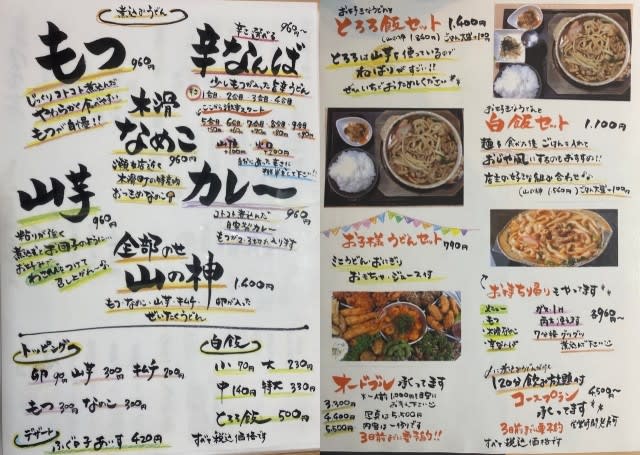 煮込みうどん
もつ 960円
じっくりコトコト煮込んだ
やわらかく食べやすい
もつが自慢!!
辛なんば
辛さ選べる 960円~
少しもつが入った辛味うどん
1辛 2辛 3辛 4辛
5辛 6辛 7辛 8辛 9辛
木滑なめこ
960円
山芋
960円
粘りが強く
カレー
960円
コトコト煮込んだ
自家製カレー
全部のせ
山の神 1,600円
もつ・なめこ・山芋・キムチ
ぜいたくうどん
トッピング
卵 90円 山芋 300円 キムチ 200円
もつ 300円 なめこ 300円
デザート
ふぐの子あいす 420円
白飯
小 70円 大 230円
中 140円 特大 330円
とろろ飯 500円
すべて税込価格です
お好きなうどんと
とろろ飯セット 1,400円
とろろは山芋を使っているので
ねばりがすごい!!
ぜひいちどおためしください
お好きなうどんと
白飯セット 1,100円
麺を食べた後ごはんを入れて
おじや風にするのもおすすめ!!
店主の好きな組み合わせです
(山の神 1,560円) ごはん大盛+100円
お子様うどんセット 790円
ミニうどん・おにぎり
おもちゃ・ジュース付
お持ち帰りもやってます
メニュー
もつ
木滑なめこ
辛なんば
960円~
オードブル 承ってます
3,300
4,400
5,500
写真は5,500円
内容は一例です
3日前までに要予約!!
120分飲み放題付
コースプラン 4,500~
承ってます
3日前までに要予約
すべて税込価格です